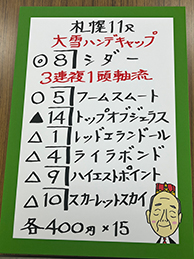 札幌11R
大雪ハンデキャップ
◎8 シダー
3連複1頭軸流
○5 フームスムート
▲14 トップオブジェラス
△1 レッドエランドール
△4 ライラボンド
△9 ハイエストポイント
△10 スカーレットスカイ
各400円×15